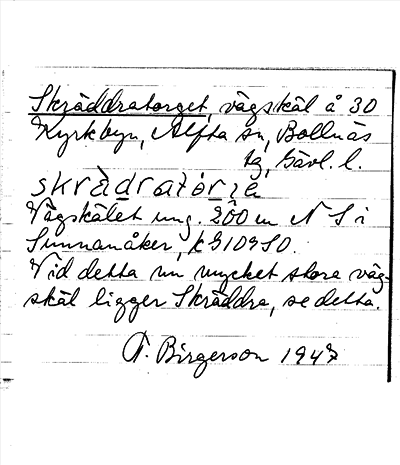 Skräddratorget, vägskäl å 30
Kyrkbyn, Alfta sn, Bollnäs
tg, Gävl. l.
skràdratórǵe
Vägskälet ung. 200 m N S i
Sunnanåker,
Vid detta nu mycket stora väg-
skäl ligger Skräddra, se detta.
Birgerson 1947